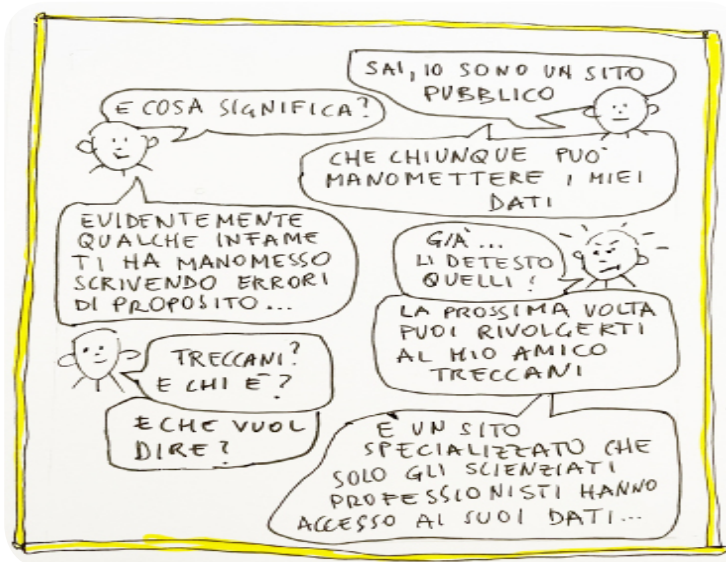 SAI, IO SONO UN SITO
PUBBLICO
E COSA SIGNIFICA?
CHE CHIUNQUE PUÒ
MANOMETTERE I MIEI
DATI
EVIDENTEMENTE
QUALCHE INFAME
TI HA MANOMESSO
SCRIVENDO ERRORI
DI PROPOSITO...
GIÀ...
LI DETESTO
QUELLI!
LA PROSSIMA VOLTA
PUOI RIVOLGERTI
AL MIO AMICO
TRECCANI
TRECCANI?
E CHI È?
E CHE VUOL
DIRE?
È UN SITO
SPECIALIZZATO CHE
SOLO GLI SCIENZIATI
PROFESSIONISTI HANNO
ACCESSO AI SUOI DATI...